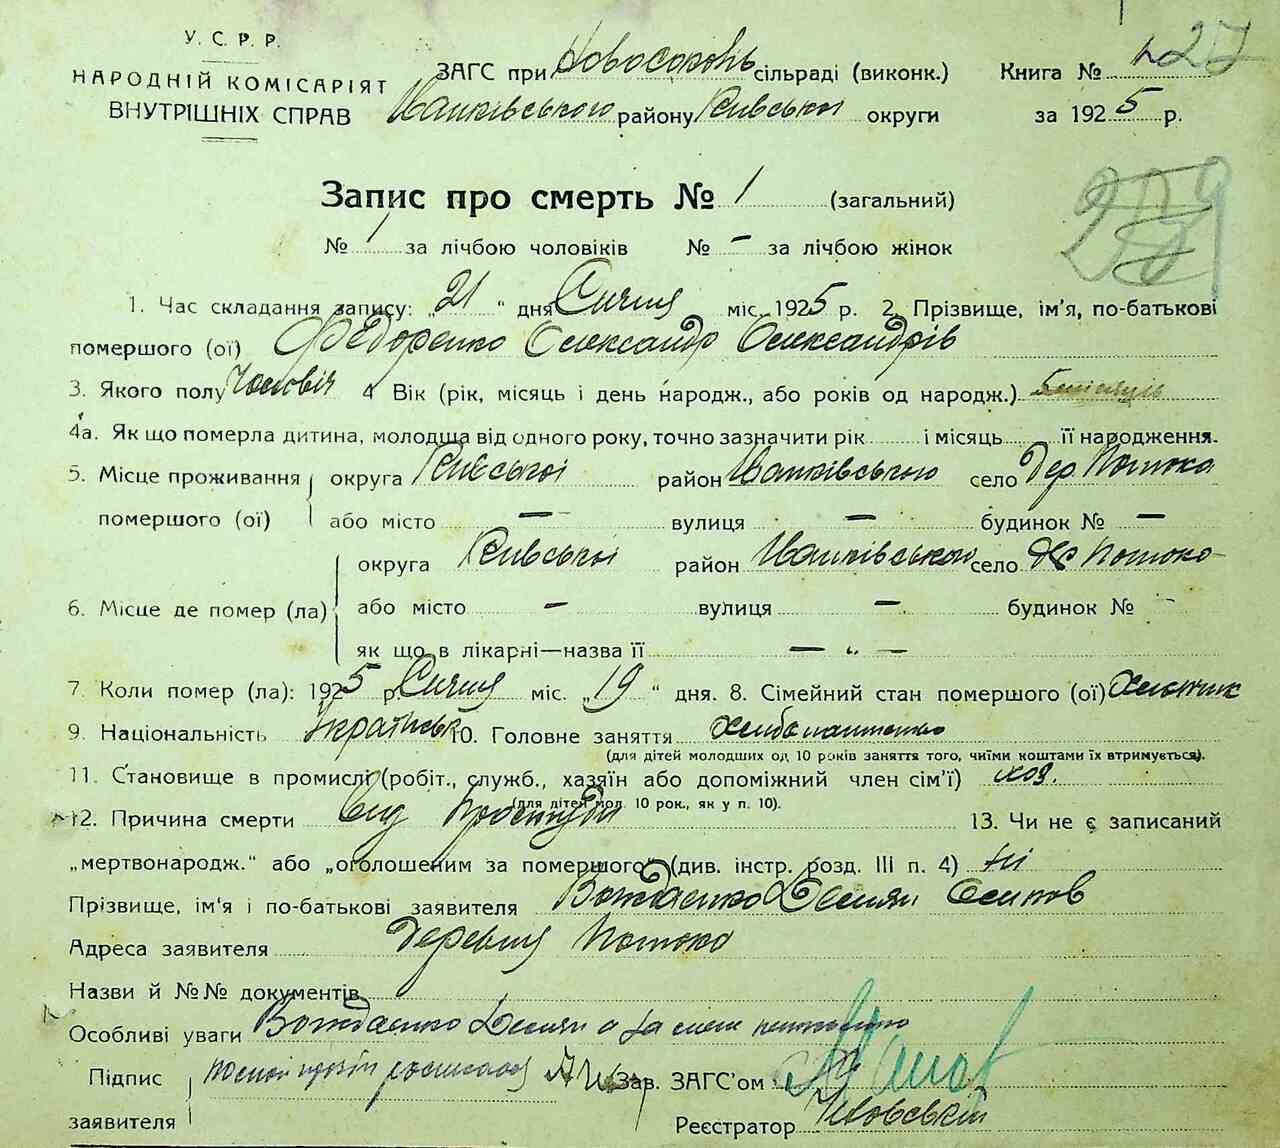 У. С. Р. Р.
НАРОДНІЙ КОМІСАРІЯТ
ВНУТРІШНІХ СПРАВ
ЗАГС при сільраді (виконк.)
Іванківського району Київської округи
Книга № 27
за 1925 р.
Запис про смерть № 1 (загальний)
№ 1 за лічбою чоловіків № – за лічбою жінок
1. Час складання запису: „21" дня Січня міс. 1925 р. 2. Прізвище, ім'я, по-батькові
помершого (ої) Федоренко Олександр Олександрів
3. Якого полу Чоловік 4 Вік (рік, місяць і день народж., або років од народж.) 5 місяців
4а. Як що померла дитина, молодша від одного року, точно зазначити рік і місяць її народження.
5. Місце проживання округа Київської район Іванківського село дер. Потока
помершого (ої) або місто – вулиця – будинок № –
округа Київської район Іванківського село дер Потока
6. Місце де помер (ла) або місто – вулиця – будинок № –
як що в лікарні—назва її — „ —
7. Коли помер (ла): 1925 р. Січня міс. „19" дня. 8. Сімейний стан помершого (ої) Хлопчик
9. Національність Українськ 10. Головне заняття
(для дітей молодших од 10 років заняття того, чиїми коштами їх втримується).
11. Становище в промислі (робіт., служб., хазяїн або допоміжний член сім'ї) хоз.
(для дітей мол. 10 рок., як у п. 10).
12. Причина смерти Від простуди 13. Чи не є записаний
„мертвонародж." або „оголошеним за помершого" (див. інстр. розд. III п. 4) ні
Прізвище, ім'я і по-батькові заявителя Демян Осипов
Адреса заявителя деревня Потока
Назви й №№ документів
Особливі уваги Демян а за
Підпис
заявителя
Зав. ЗАГС'ом
Реєстратор